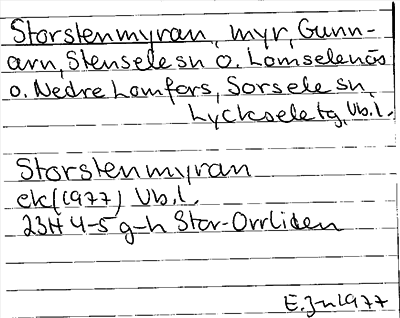 Storstenmyran, myr, Gunn-
arn, Stensele sn o. Lomselenäs
o. Nedre Lomfors, Sorsele sn,
Lycksele tg, Vb.l.
Storstenmyran
ek (1977) Vb.l.
23H 4-5 g-h Stor-Orrliden
E.Jn 1977